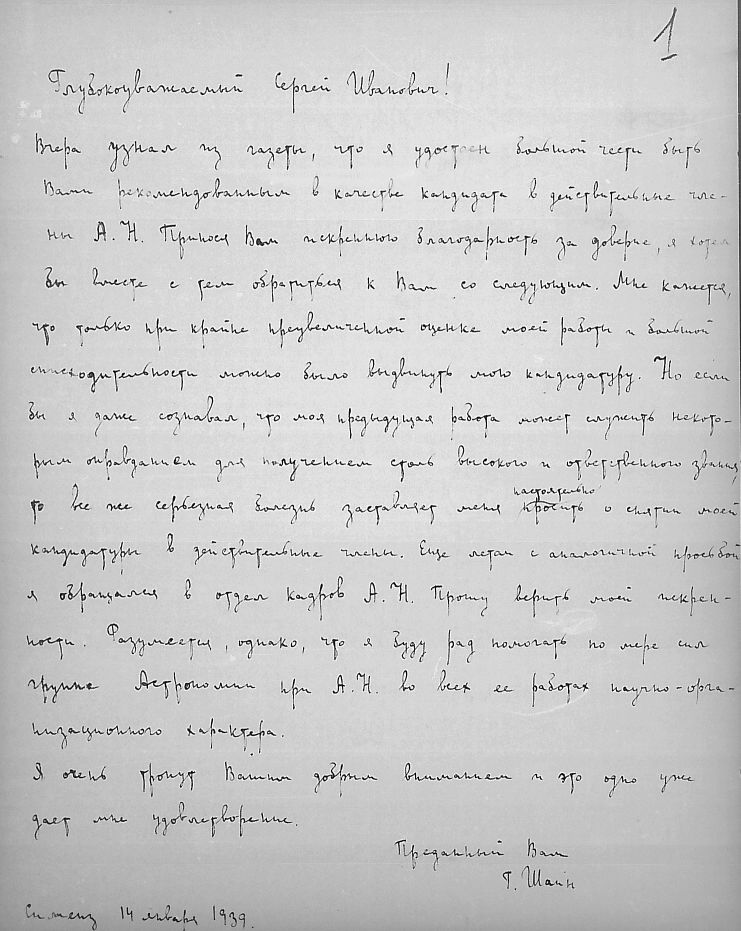 1
Глубокоуважаемый Сергей Иванович!
Вчера узнал из газеты, что я удостоен большой чести быть
Вами рекомендованным в качестве кандидата в действительные чле-
ны А.Н. Принося Вам искреннюю благодарность за доверие, я хотел
бы вместе с тем обратиться к Вам со следующим. Мне кажется,
что только при крайне преувеличенной оценке моей работы и большой
снисходительности можно было выдвинуть мою кандидатуру. Но если
бы я даже сознавал, что моя предыдущая работа может служить некото-
рым оправданием для получением столь высокого и ответственного звания,
то все же серьезная болезнь заставляет меня настоятельно просить о снятии моей
кандидатуры в действительные члены. Еще летом с аналогичной просьбой
я обращался в отдел кадров А.Н. Прошу верить моей искрен-
ности. Разумеется, однако, что я буду рад помогать по мере сил
группе Астрономии при А.Н. во всех ее работах научно-орга-
низационного характера.
Я очень тронут Вашим добрым вниманием и это одно уже
дает мне удовлетворение.
Преданный Вам
Г. Шайн
Симеиз 14 января 1939.